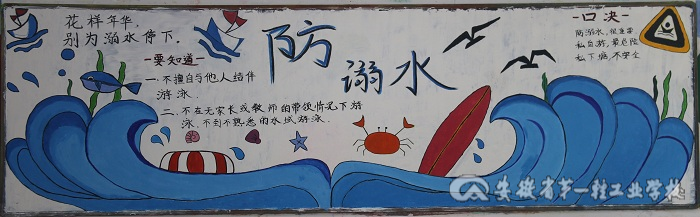 花样年华,
别为溺水停下.
要知道
一. 不擅自与他人结伴
游泳.
二. 不在无家长或教师的带领情况下游
泳, 不到不熟悉的水域游泳.
防
溺水
口决
防溺水, 很重要
私自游, 最危险
私下塘, 不安全
安徽省第一轻工业学校